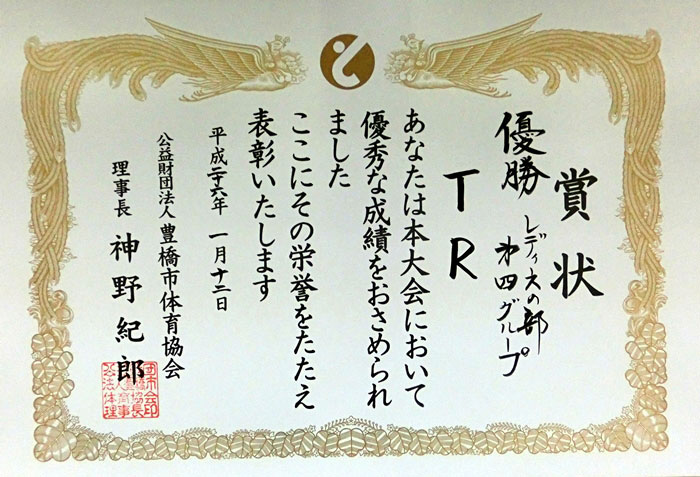 賞状
優勝
レディスの部
第四グループ
TR
あなたは本大会において
優秀な成績をおさめられ
ました
ここにその栄誉をたたえ
表彰いたします
平成二十六年 一月十二日
公益財団法人 豊橋市体育協会
理事長 神野紀郎